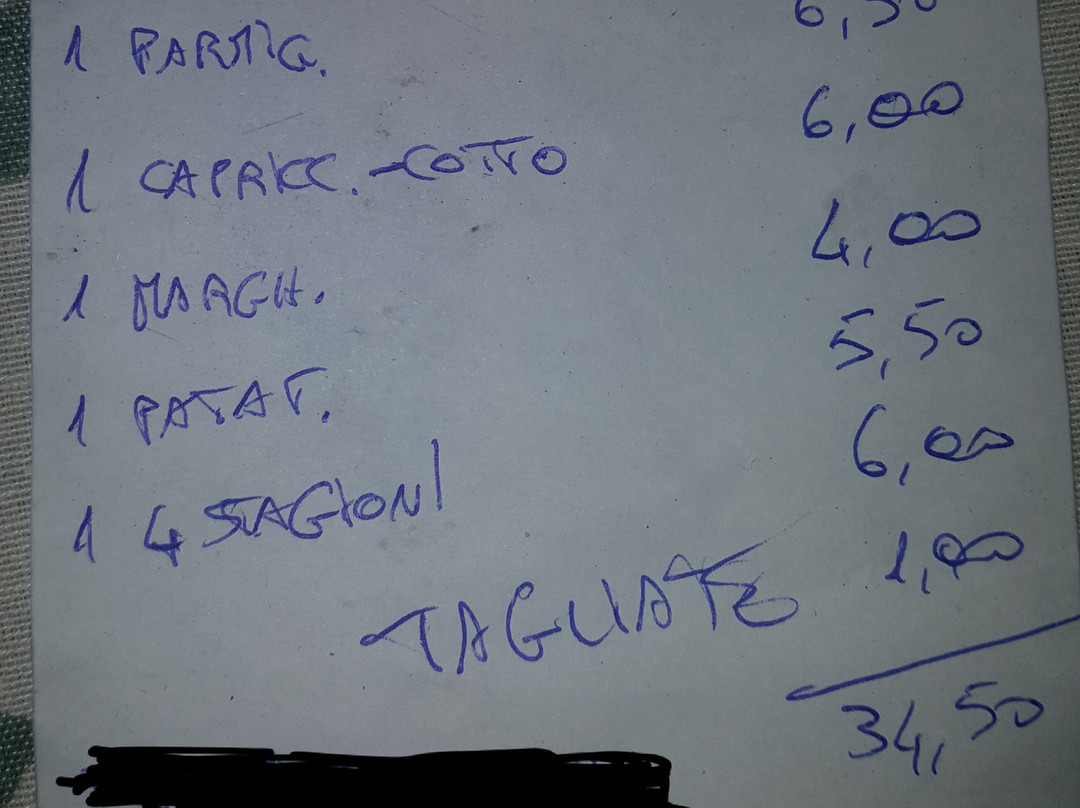 1 PARMIG. 6,50
1 CAPRICC. -COTTO 6,00
1 MARGH. 4,00
1 PATAT. 5,50
1 4 STAGIONI 6,00
TAGLIATE 1,00
34,50